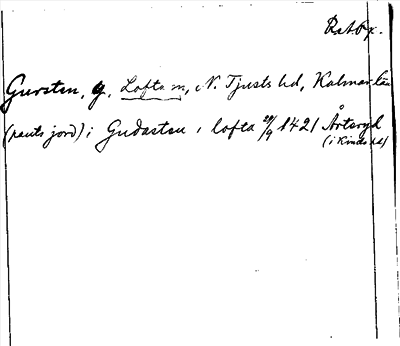 RAtb.
Gursten, g. Lofta sn, N. Tjusts hd, Kalmar län
(hents jord) i Gudasten i lofta 29/9 1421 Årteryd
(i Kinds hd)